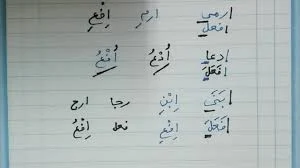 ارمي ارمِ اِفْعِ
افعل
ادعا اُدْعُ اُفْعُ
افعَلَ
بَنَى اِبْنِ رجا ارج
فَعَلَ اِفْعِ فعل اِفْعُ